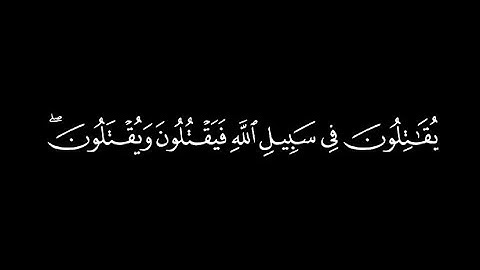 يُقَـٰتِلُونَ فِى سَبِيلِ ٱللَّهِ فَيَقْتُلُونَ وَيُقْتَلُونَ ۖ